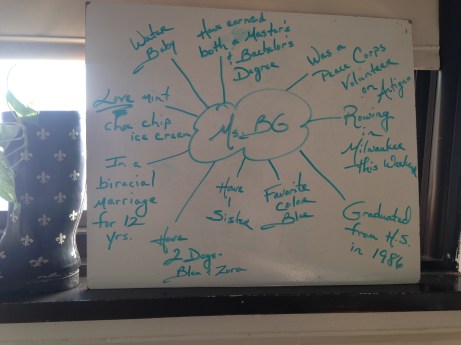 Water
Baby
Has earned
both a Master's
& Bachelor's
Degree
Was a
Peace Corps
Volunteer
on
Antigua
Love mint
choc chip
ice cream
Ms. BG
Rowing
in
Milwaukee
this
In a
biracial
marriage
for 12
yrs.
Have
1
Sister
Favorite
Color
Blue
Graduated
from H.S.
in 1986
Have
2 Dogs-
Zora